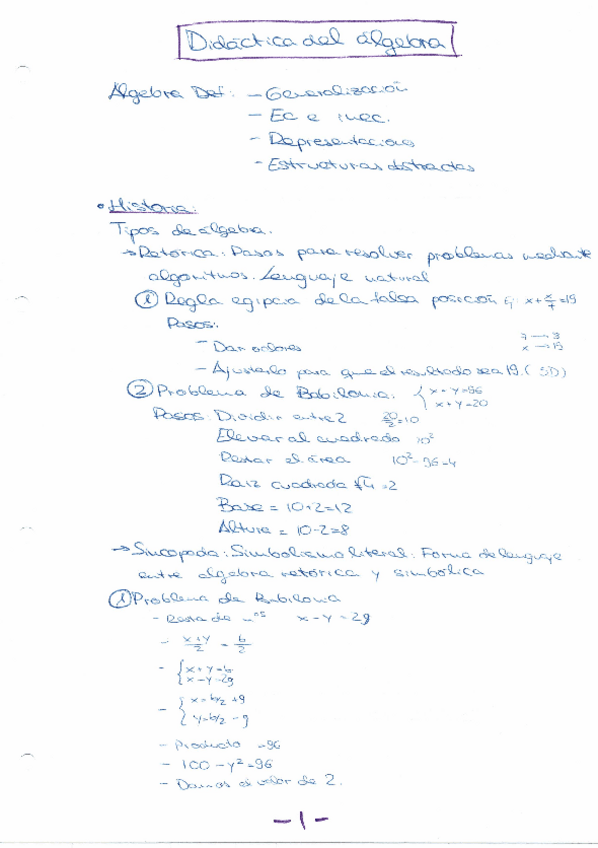 Didáctica del álgebra
Álgebra Def: - Generalización
- Ec e inec.
- Representación
- Estructuras abstractas
• Historia:
Tipos de álgebra.
→ Retórica: Pasos para resolver problemas mediante
algoritmos. Lenguaje natural
① Regla egipcia de la falsa posición Ej: x+x/7=19
Pasos:
- Dar valores 7 → 8
x → 19
- Ajustarlo para que el resultado sea 19. (SD)
② Problema de Babilonia. { x · y=96
x+y=20
Pasos: Dividir entre 2 20/2=10
Elevar al cuadrado 10²
Restar el área 10²-96=4
Raiz cuadrada √4=2
Base = 10+2=12
Altura = 10-2=8
→ Sincopada: Simbolismo literal: Forma de lenguaje
entre álgebra retórica y simbólica
① Problema de Babilonia
- Resta de nºs x-y=2g
- x+y/2 = b/2
- { x+y=b
x-y=2g
- { x=b/2+g
y=b/2-g
- Producto =96
- 100-y²=96
- Damos el valor de 2.
-1-